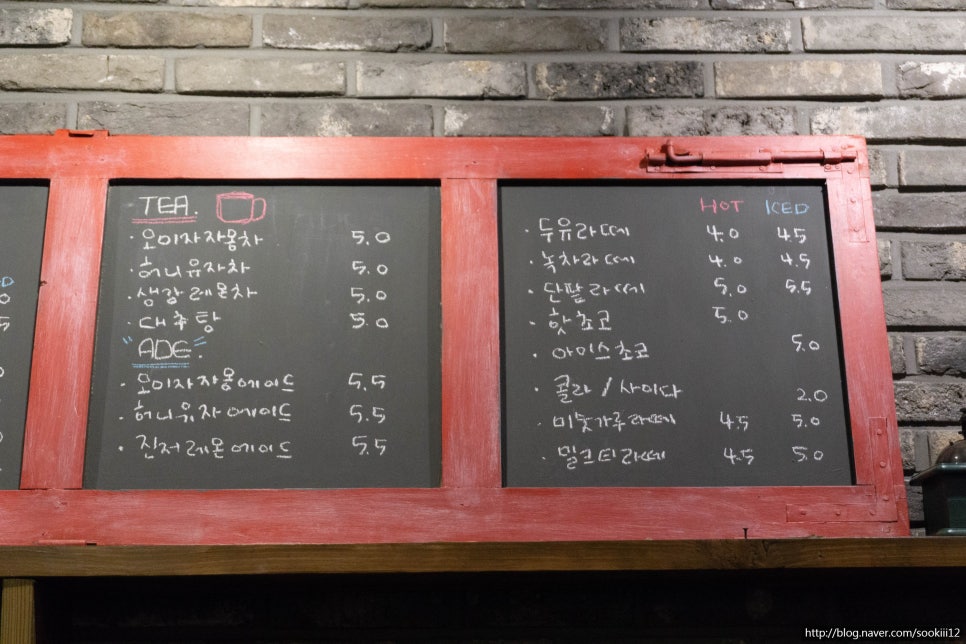 TEA.
· 오미자자몽차 5.0
· 허니유자차 5.0
· 생강레몬차 5.0
· 대추탕 5.0
"ADE".
· 오미자자몽에이드 5.5
· 허니유자에이드 5.5
· 진저레몬에이드 5.5
HOT ICED
· 두유라떼 4.0 4.5
· 녹차라떼 4.0 4.5
· 단팥라떼 5.0 5.5
· 핫초코 5.0
· 아이스초코 5.0
· 콜라 / 사이다 2.0
· 미숫가루라떼 4.5 5.0
· 밀크티라떼 4.5 5.0
http://blog.naver.com/sookiii12